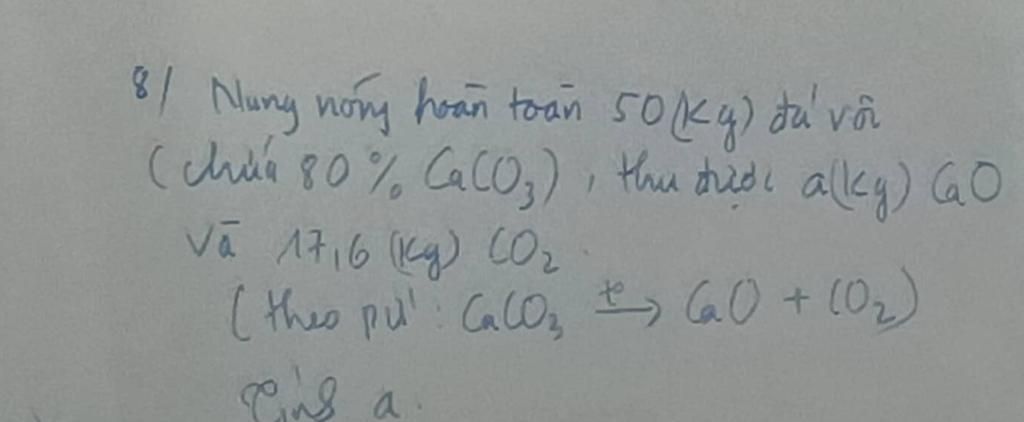 8/ Nung nóng hoàn toàn 50(kg) đá vôi
(chứa 80% CaCO₃), thu được a(kg) CaO
và 17,6 (kg) CO₂.
(theo pư: CaCO₃ t° → CaO + CO₂)
Tính a.